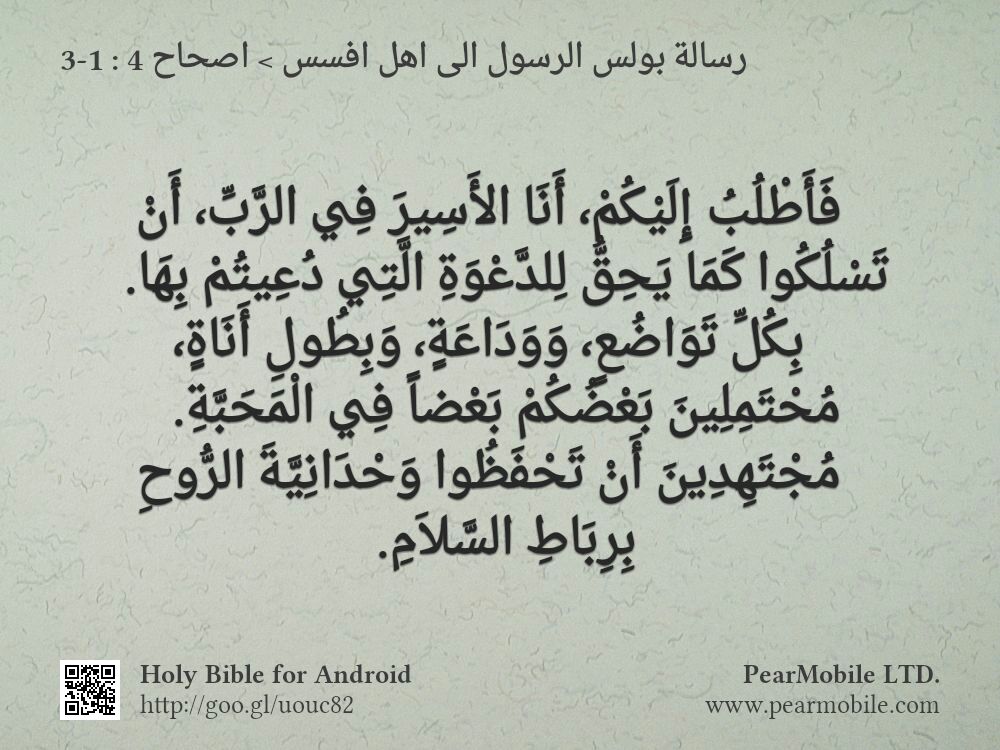 رسالة بولس الرسول الى اهل افسس > اصحاح 4 : 1-3
فَأَطْلُبُ إِلَيْكُمْ، أَنَا الأَسِيرَ فِي الرَّبِّ، أَنْ
تَسْلُكُوا كَمَا يَحِقُّ لِلدَّعْوَةِ الَّتِي دُعِيتُمْ بِهَا.
بِكُلِّ تَوَاضُعٍ، وَوَدَاعَةٍ، وَبِطُولِ أَنَاةٍ،
مُحْتَمِلِينَ بَعْضُكُمْ بَعْضاً فِي الْمَحَبَّةِ.
مُجْتَهِدِينَ أَنْ تَحْفَظُوا وَحْدَانِيَّةَ الرُّوحِ
بِرِبَاطِ السَّلاَمِ.
Holy Bible for Android
http://goo.gl/uouc82
PearMobile LTD.
www.pearmobile.com